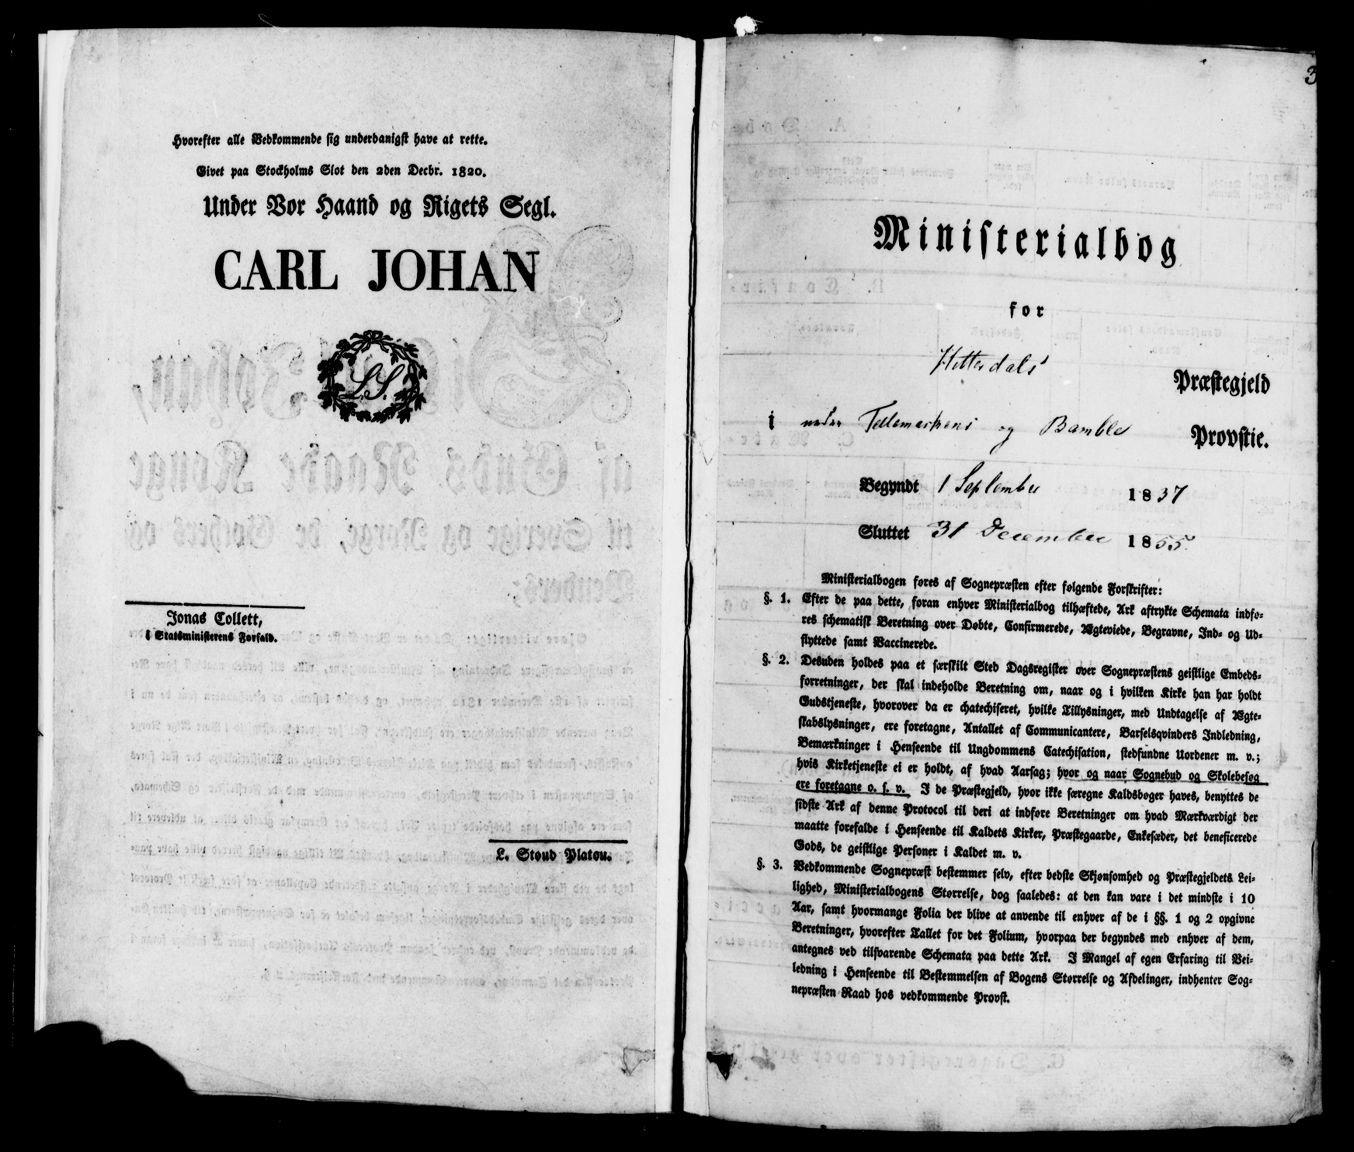 Hvorefter alle Vedkommende sig underdanigst have at rette.
Givet paa Stockholms Slot den 2den Decbr. 1820.
Under Vor Haand og Rigets Segl.
CARL JOHAN
L.S.
Jonas Collett,
i Statsministerens Forfald.
L. Stoud Platou.
3
Ministerialbog
for
Hitterdals
Præstegjeld
i nedre Tellemarkens og Bamble Provstie.
Begyndt 1 September 1837
Sluttet 31 December 1855.
Ministerialbogen føres af Sognepræsten efter følgende Forskrifter:
§. 1. Efter de paa dette, foran enhver Ministerialbog tilhæftede, Ark aftrykte Schemata indfø-
res schematisk Beretning over Døbte, Confirmerede, Ægteviede, Begravne, Ind- og Ud-
flyttede samt Vaccinerede.
§. 2. Desuden holdes paa et særskilt Sted Dagsregister over Sognepræstens geistlige Embeds-
forretninger, der skal indeholde Beretning om, naar og i hvilken Kirke han har holdt
Gudstjeneste, hvorover da er chatechiseret, hvilke Tillysninger, med Undtagelse af Ægte-
skabslysninger, ere foretagne, Antallet af Communicantere, Barselqvinders Indledning,
Bemærkninger i Henseende til Ungdommens Catechisation, stedfundne Uordener m. v.;
hvis Kirketjeneste ei er holdt, af hvad Aarsag; hvor og naar Sognebud og Skolebesøg
ere foretagne o. s. v. I de Præstegjeld, hvor ikke særegne Kaldsbøger haves, benyttes de
sidste Ark af denne Protocol til deri at indføre Beretninger om hvad Mærkværdigt der
maatte forefalde i Henseende til Kaldets Kirker, Præstegaarde, Enkesæder, det beneficerede
Gods, de geistlige Personer i Kaldet m. v.
§. 3. Vedkommende Sognepræst bestemmer selv, efter bedste Skjønsomhed og Præstegjeldets Lei-
lighed, Ministerialbogens Størrelse, dog saaledes: at den kan vare i det mindste i 10
Aar, samt hvormange Folia der blive at anvende til enhver af de i §§. 1 og 2 opgivne
Beretninger, hvorefter Tallet for det Folium, hvorpaa der begyndes med enhver af dem,
antegnes ved tilsvarende Schemata paa dette Ark. I Mangel af egen Erfaring til Vei-
ledning i Henseende til Bestemmelsen af Bogens Størrelse og Afdelinger, indhenter Sog-
nepræsten Raad hos vedkommende Provst.